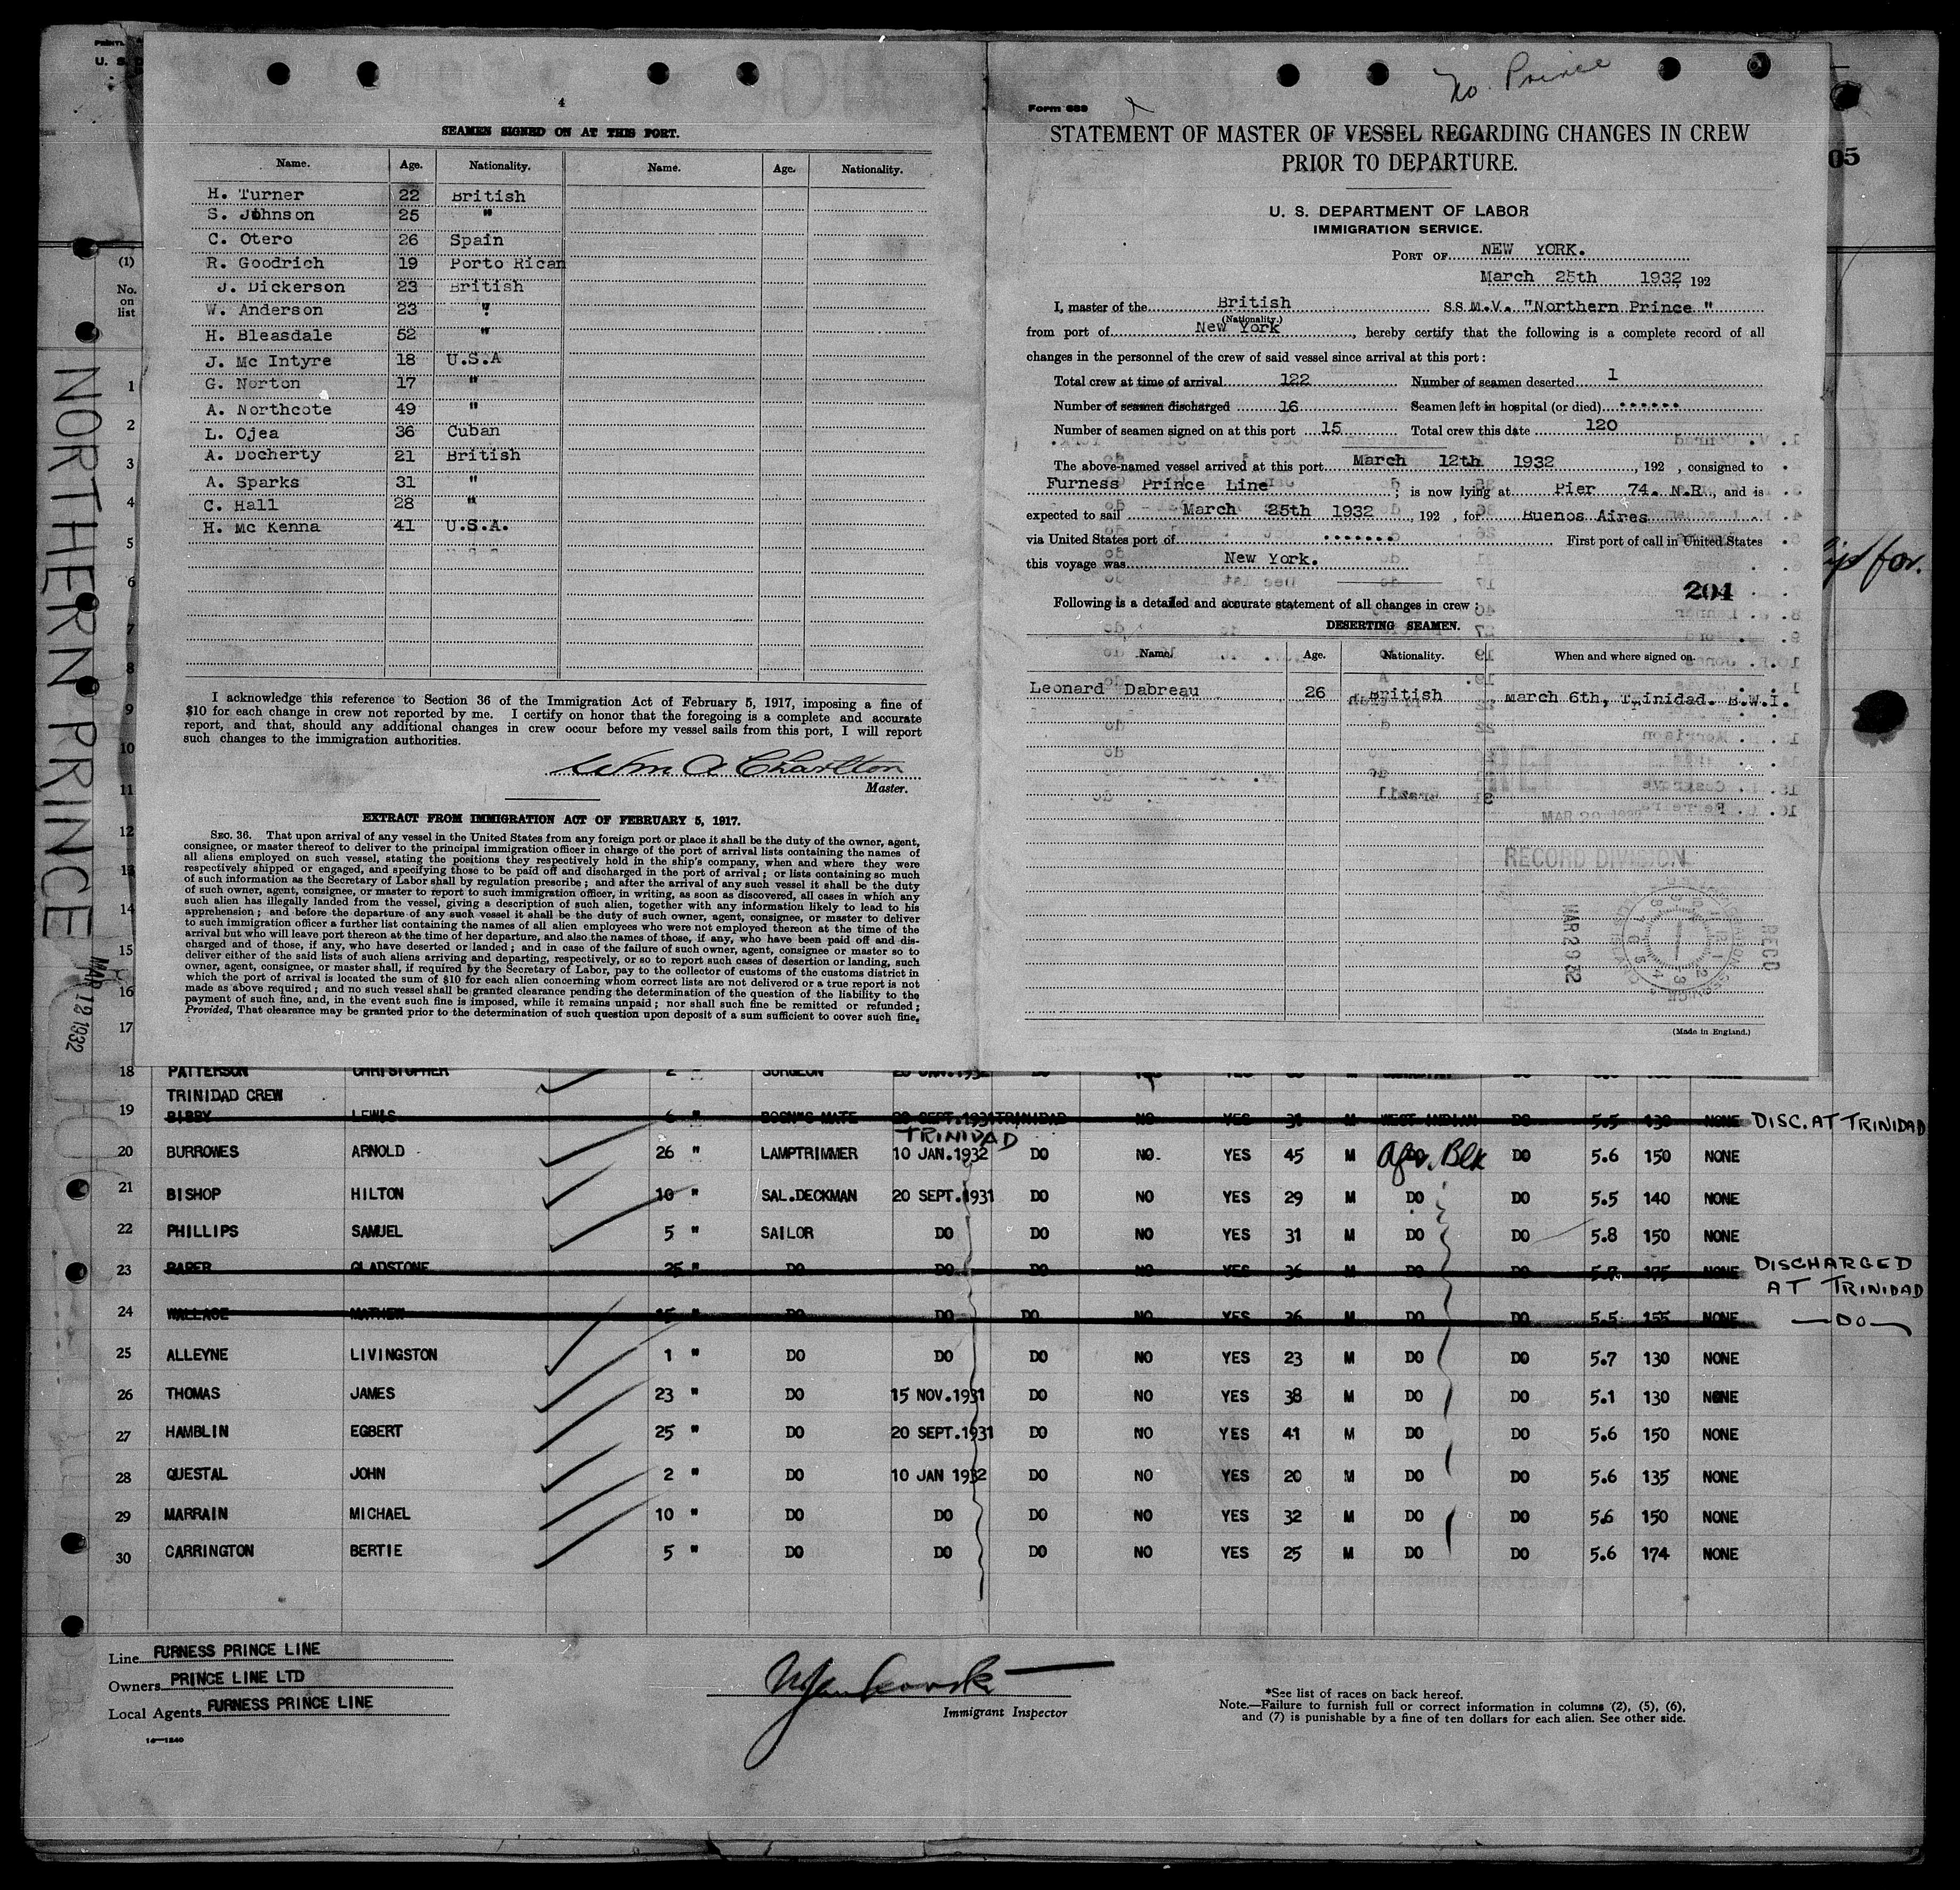 4
SEAMEN SIGNED ON AT THIS PORT.
Name. Age. Nationality. Name. Age. Nationality.
H. Turner 22 British
S. Johnson 25 "
C. Otero 26 Spain
R. Goodrich 19 Porto Rican
J. Dickerson 23 British
W. Anderson 23 "
H. Bleasdale 52 "
J. Mc Intyre 18 U.S.A
G. Norton 17 "
A. Northcote 49 "
L. Ojea 36 Cuban
A. Docherty 21 British
A. Sparks 31 "
C. Hall 28 "
H. Mc Kenna 41 U.S.A.
I acknowledge this reference to Section 36 of the Immigration Act of February 5, 1917, imposing a fine of
$10 for each change in crew not reported by me. I certify on honor that the foregoing is a complete and accurate
report, and that, should any additional changes in crew occur before my vessel sails from this port, I will report
such changes to the immigration authorities.
Wm A Charlton
Master.
EXTRACT FROM IMMIGRATION ACT OF FEBRUARY 5, 1917.
SEC. 36. That upon arrival of any vessel in the United States from any foreign port or place it shall be the duty of the owner, agent,
consignee, or master thereof to deliver to the principal immigration officer in charge of the port of arrival lists containing the names of
all aliens employed on such vessel, stating the positions they respectively hold in the ship's company, when and where they were
respectively shipped or engaged, and specifying those to be paid off and discharged in the port of arrival; or lists containing so much
of such information as the Secretary of Labor shall by regulation prescribe; and after the arrival of any such vessel it shall be the duty
of such owner, agent, consignee, or master to report to such immigration officer, in writing, as soon as discovered, all cases in which any
such alien has illegally landed from the vessel, giving a description of such alien, together with any information likely to lead to his
apprehension; and before the departure of any such vessel it shall be the duty of such owner, agent, consignee, or master to deliver
to such immigration officer a further list containing the names of all alien employees who were not employed thereon at the time of the
arrival but who will leave port thereon at the time of her departure, and also the names of those, if any, who have been paid off and dis-
charged and of those, if any, who have deserted or landed; and in case of the failure of such owner, agent, consignee or master so to
deliver either of the said lists of such aliens arriving and departing, respectively, or so to report such cases of desertion or landing, such
owner, agent, consignee, or master shall, if required by the Secretary of Labor, pay to the collector of customs of the customs district in
which the port of arrival is located the sum of $10 for each alien concerning whom correct lists are not delivered or a true report is not
made as above required; and no such vessel shall be granted clearance pending the determination of the question of the liability to the
payment of such fine, and, in the event such fine is imposed, while it remains unpaid; nor shall such fine be remitted or refunded;
Provided, That clearance may be granted prior to the determination of such question upon deposit of a sum sufficient to cover such fine,
No. Prince
Form 689
STATEMENT OF MASTER OF VESSEL REGARDING CHANGES IN CREW
PRIOR TO DEPARTURE.
U. S. DEPARTMENT OF LABOR
IMMIGRATION SERVICE.
PORT OF NEW YORK.
March 25th 1932 192
I, master of the British S.S. M.V. "Northern Prince"
(Nationality.)
from port of New York, hereby certify that the following is a complete record of all
changes in the personnel of the crew of said vessel since arrival at this port:
Total crew at time of arrival 122 Number of seamen deserted 1
Number of seamen discharged 16 Seamen left in hospital (or died)
Number of seamen signed on at this port 15 Total crew this date 120
The above-named vessel arrived at this port March 12th 1932, 192 , consigned to
Furness Prince Line; is now lying at Pier 74. N.R., and is
expected to sail March 25th 1932, 192 , for Buenos Aires
via United States port of First port of call in United States
this voyage was New York.
204
Following is a detailed and accurate statement of all changes in crew:
DESERTING SEAMEN.
Name. Age. Nationality. When and where signed on.
Leonard Dabreau 26 British March 6th, Trinidad. B.W.I.
RECORD DIVISION
RECD
MAR 29 32
(Made in England.)
U. S.
05
(1)
No.
on
list
NORTHERN PRINCE
MAR 12 1932
1
2
3
4
5
6
7
8
9
10
11
12
13
14
15
16
17
18 PATTERSON CHRISTOPHER 2 " SURGEON
TRINIDAD CREW
19 BIBBY LEWIS 6 " BOSN'S MATE 20 SEPT.1931 TRINIDAD NO YES 31 M WEST INDIAN DO 5.5 130 NONE DISC. AT TRINIDAD
TRINIDAD
20 BURROWES ARNOLD 26 " LAMPTRIMMER 10 JAN.1932 DO NO. YES 45 M Afr. Blk DO 5.6 150 NONE
21 BISHOP HILTON 10 " SAL.DECKMAN 20 SEPT.1931 DO NO YES 29 M DO DO 5.5 140 NONE
22 PHILLIPS SAMUEL 5 " SAILOR DO DO NO YES 31 M DO DO 5.8 150 NONE
23 GLADSTONE 25 " DO DO DO NO YES 36 M DO DO 5.7 175 NONE DISCHARGED
AT TRINIDAD
24 WALLACE MATHEW 15 " DO DO DO NO YES 36 M DO DO 5.5 155 NONE —DO—
25 ALLEYNE LIVINGSTON 1 " DO DO DO NO YES 23 M DO DO 5.7 130 NONE
26 THOMAS JAMES 23 " DO 15 NOV.1931 DO NO YES 38 M DO DO 5.1 130 NONE
27 HAMBLIN EGBERT 25 " DO 20 SEPT.1931 DO NO YES 41 M DO DO 5.6 150 NONE
28 QUESTAL JOHN 2 " DO 10 JAN 1932 DO NO YES 20 M DO DO 5.6 135 NONE
29 MARRAIN MICHAEL 10 " DO DO DO NO YES 32 M DO DO 5.6 150 NONE
30 CARRINGTON BERTIE 5 " DO DO DO NO YES 25 M DO DO 5.6 174 NONE
Line FURNESS PRINCE LINE
Owners PRINCE LINE LTD
Local Agents FURNESS PRINCE LINE
Immigrant Inspector
*See list of races on back hereof.
Note.—Failure to furnish full or correct information in columns (2), (5), (6),
and (7) is punishable by a fine of ten dollars for each alien. See other side.
16—1240